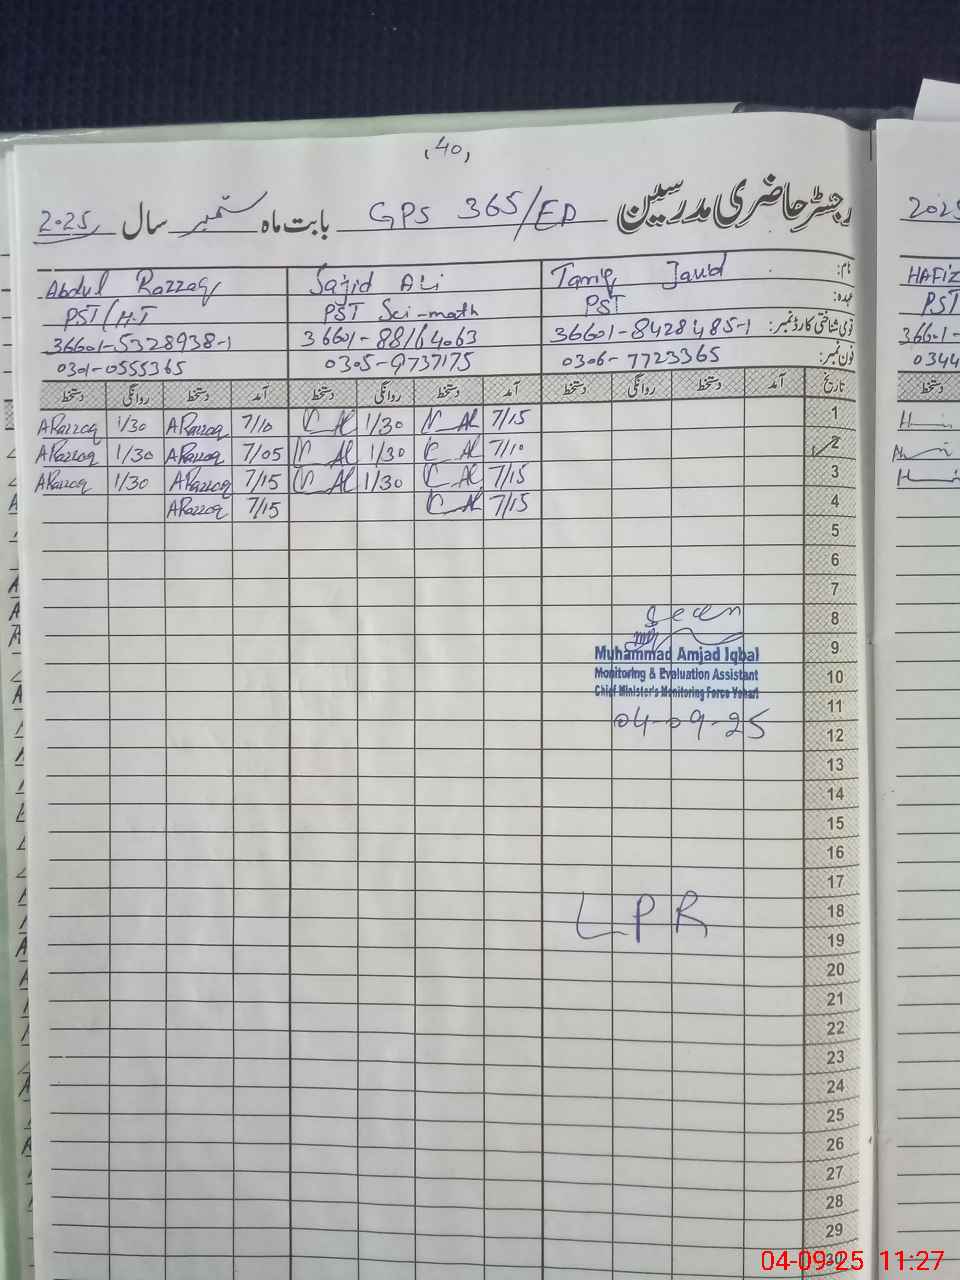 (40)
رجسٹر حاضری مدرسین GPS 365/ED بابت ماہ ستمبر سال 2025
نام: Tariq Javed Sajid Ali Abdul Razzaq
عہدہ: PST PST Sci-math PST/H.T
قومی شناختی کارڈ نمبر: 36601-8428485-1 36601-88164063 36601-5328938-1
فون نمبر: 0306-7723365 0305-9737175 0301-0555365
تاریخ آمد دستخط روانگی دستخط آمد دستخط روانگی دستخط آمد دستخط روانگی دستخط
1 7/15 1/30 7/10 ARazzaq 1/30 ARazzaq
2 7/10 1/30 7/05 ARazzaq 1/30 ARazzaq
3 7/15 1/30 7/15 ARazzaq 1/30 ARazzaq
4 7/15 7/15 ARazzaq
5
6
7
8
Seen
9
Muhammad Amjad Iqbal
10
Monitoring & Evaluation Assistant
Chief Minister's Monitoring Force Vehari
11
04-09-25
12
13
14
15
16
17
18
LPR
19
20
21
22
23
24
25
26
27
28
29
30
2025
HAFIZ
PST
36601-
0344
دستخط
04-09-25 11:27